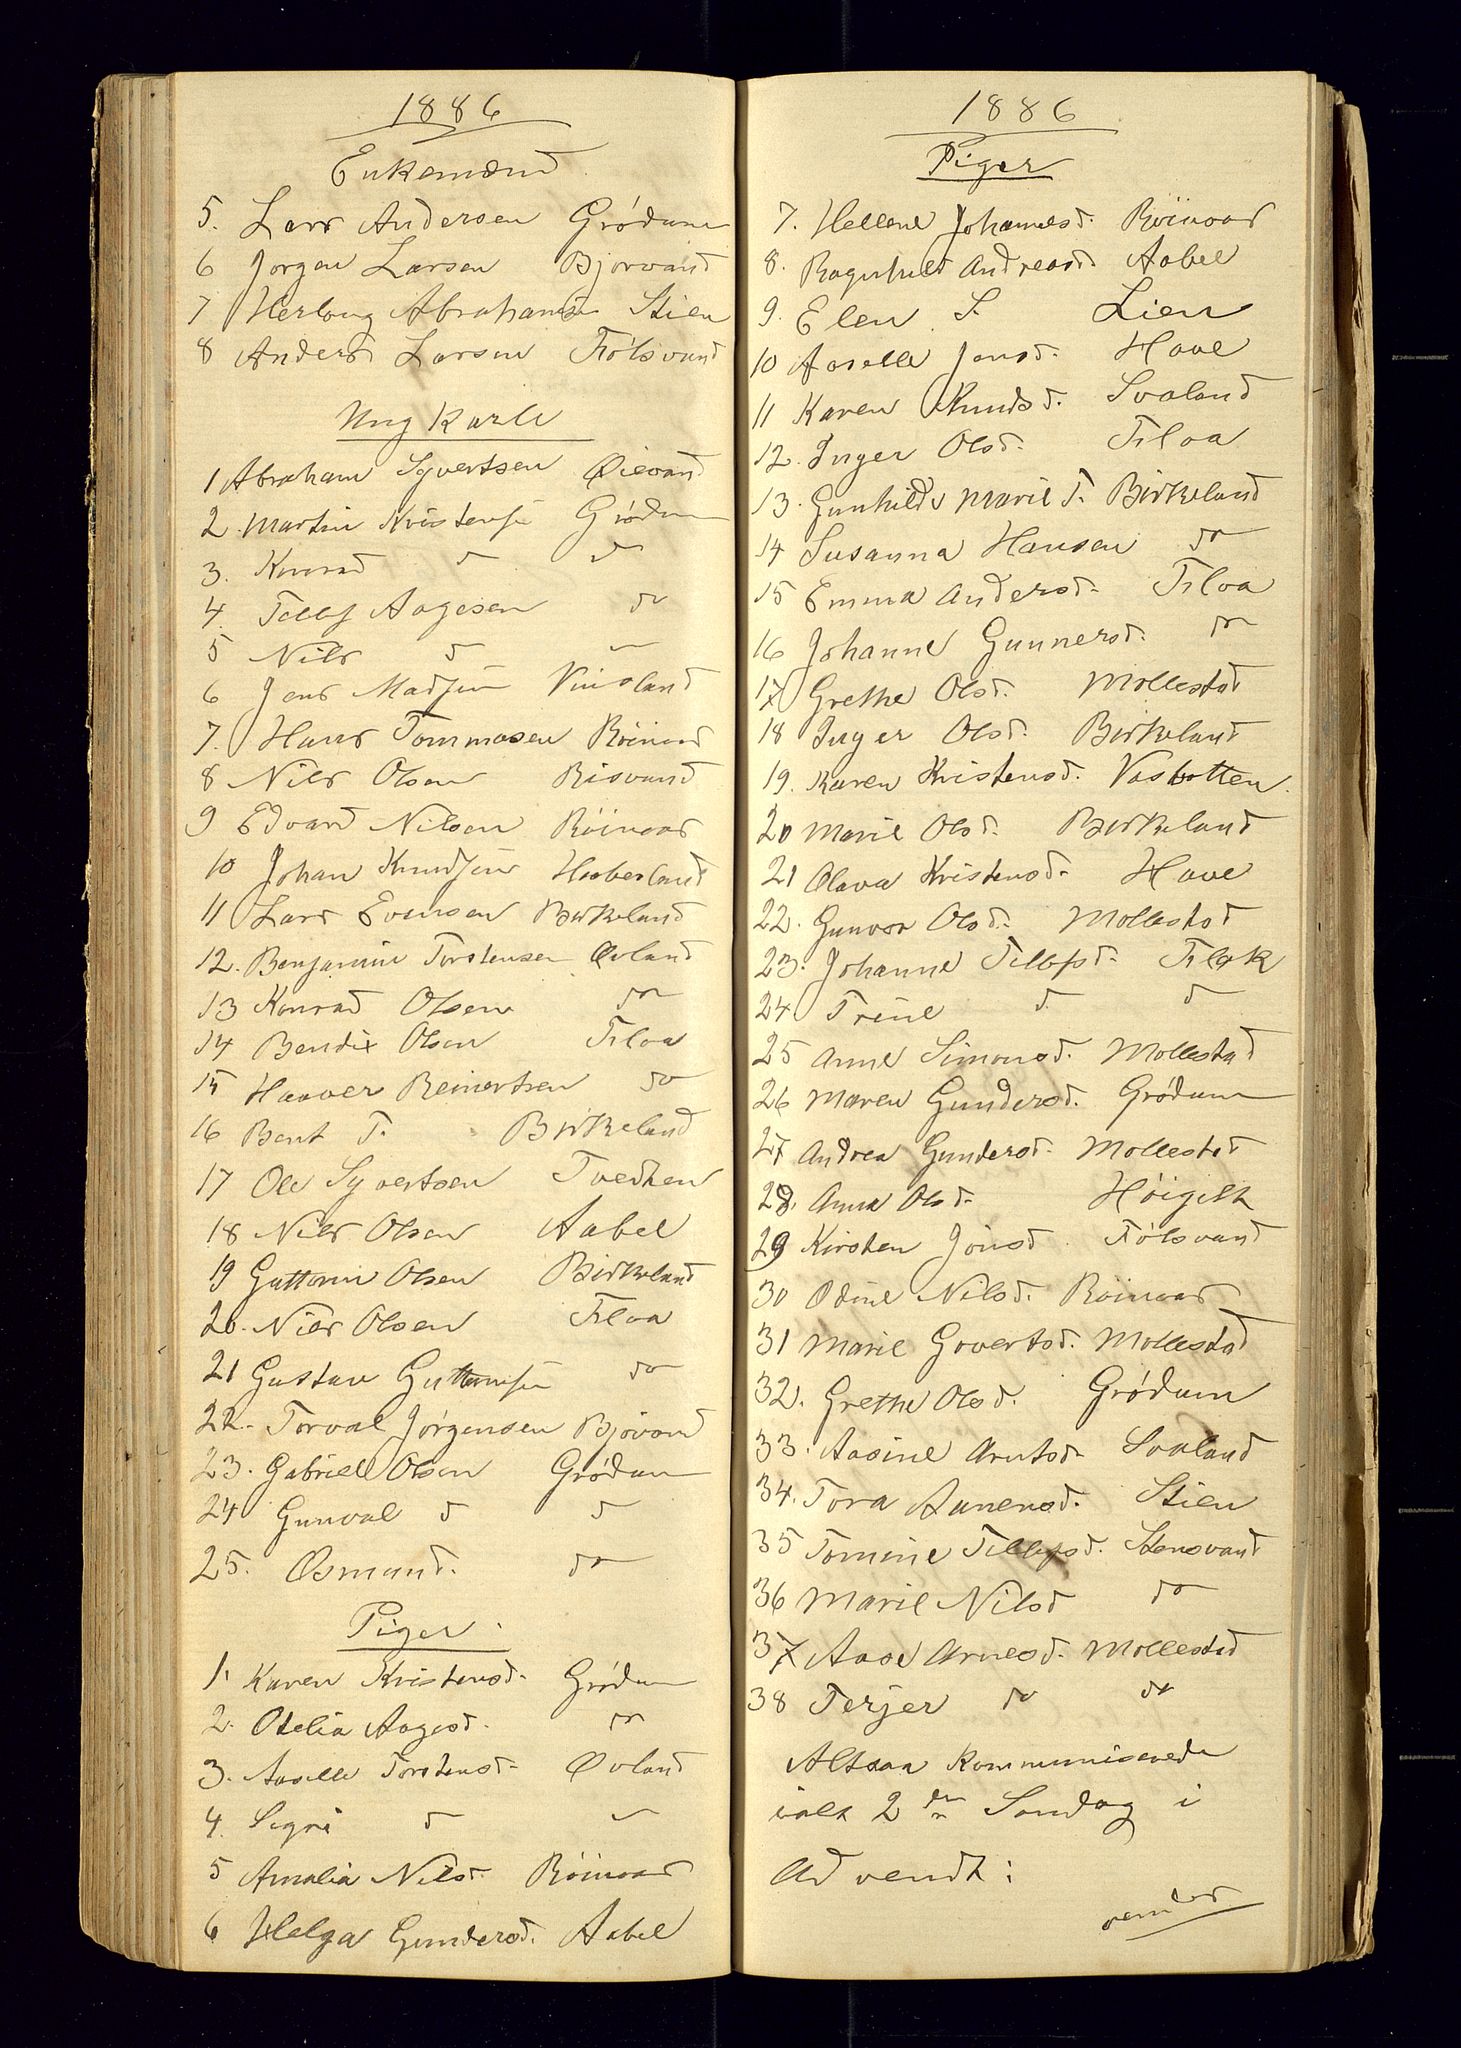 1886
Enkemænd
5. Lars Andersen Grödum
6 Jørgen Larsen Bjorvand
7 Herloug Abrahams Stien
8 Anders Larsen Fiölsvand
Ung Karle
1 Abraham Syvertsen Øievand
2. Martin Kristensen Grødum
3. Konrad d do
4. Tellef Aagesen do
5 Nils d "
6 Jens Madsen Vinsland
7. Hans Tommasen Röinaas
8 Nils Olsen Risvand
9 Edvard Nilsen Röinaas
10 Johan Knudsen Haaberland
11 Lars Evensen Birkeland
12. Benjamin Torstensen Øvland
13 Konrad Olsen do
14 Bendix Olsen Filaa
15 Haaver Reinertsen do
16 Bent T. Birkeland
17 Ole Syvertsen Tvedten
18 Nils Olsen Aabel
19 Guttorm Olsen Birkeland
20. Nils Olsen Filaa
21 Gustav Guttormsen do
22. Torval Jørgensen Bjovand
23. Gabriel Olsen Grødum
24 Gunval d d
25. Osmund. do
Piger.
1. Karen Kristensd. Grödum
2. Otelia Aagesd. do
3. Aaselle Torstensd. Øvland
4. Sigri d "
5 Amalia Nilsd. Röinaas
6 Helga Gundersd. Aabel
1886
Piger
7. Hellene Johannesd. Röinaas
8. Ragnhild Andreasd Aabel
9. Elen S. Lien
10 Aaselle Jensd. Have
11 Karen Knudsd. Svaland
12. Inger Olsd. Filaa
13. Gunhilds Marie T. Birkeland
14 Susanna Hansen do
15 Emma Andersd. Filaa
16 Johanne Gunnersd. do
17 Grethe Olsd. Mollestad
18 Inger Olsd. Birkeland
19. Karen Kristensd. Vasbotten.
20 Marie Olsd. Birkeland
21 Olava Kristensd. Have
22. Gunvor Olsd. Mollestad
23. Johanne Tellefsd. Filak
24 Trine d. d
25 Anne Simonsd. Mollestad
26 Maren Gundersd. Grødum
27 Andrea Gundersd. Mollestad
28. Anna Olsd. Höigilt
29 Kirsten Jensd. Fiölsvand
30 Odine Nilsd. Röinaas
31 Marie Govertsd. Mollestad
32. Grethe Olsd. Grødum
33. Aasine Arntsd. Svaland
34. Tora Aanensd. Stien
35 Tomine Tellefsd. Stensvand
36 Marie Nilsd do
37 Aase Arnesd. Mollestad
38 Terjer do do
Altsaa Kommuniserede
ialt 2den Sondag i
Advendt:
vender